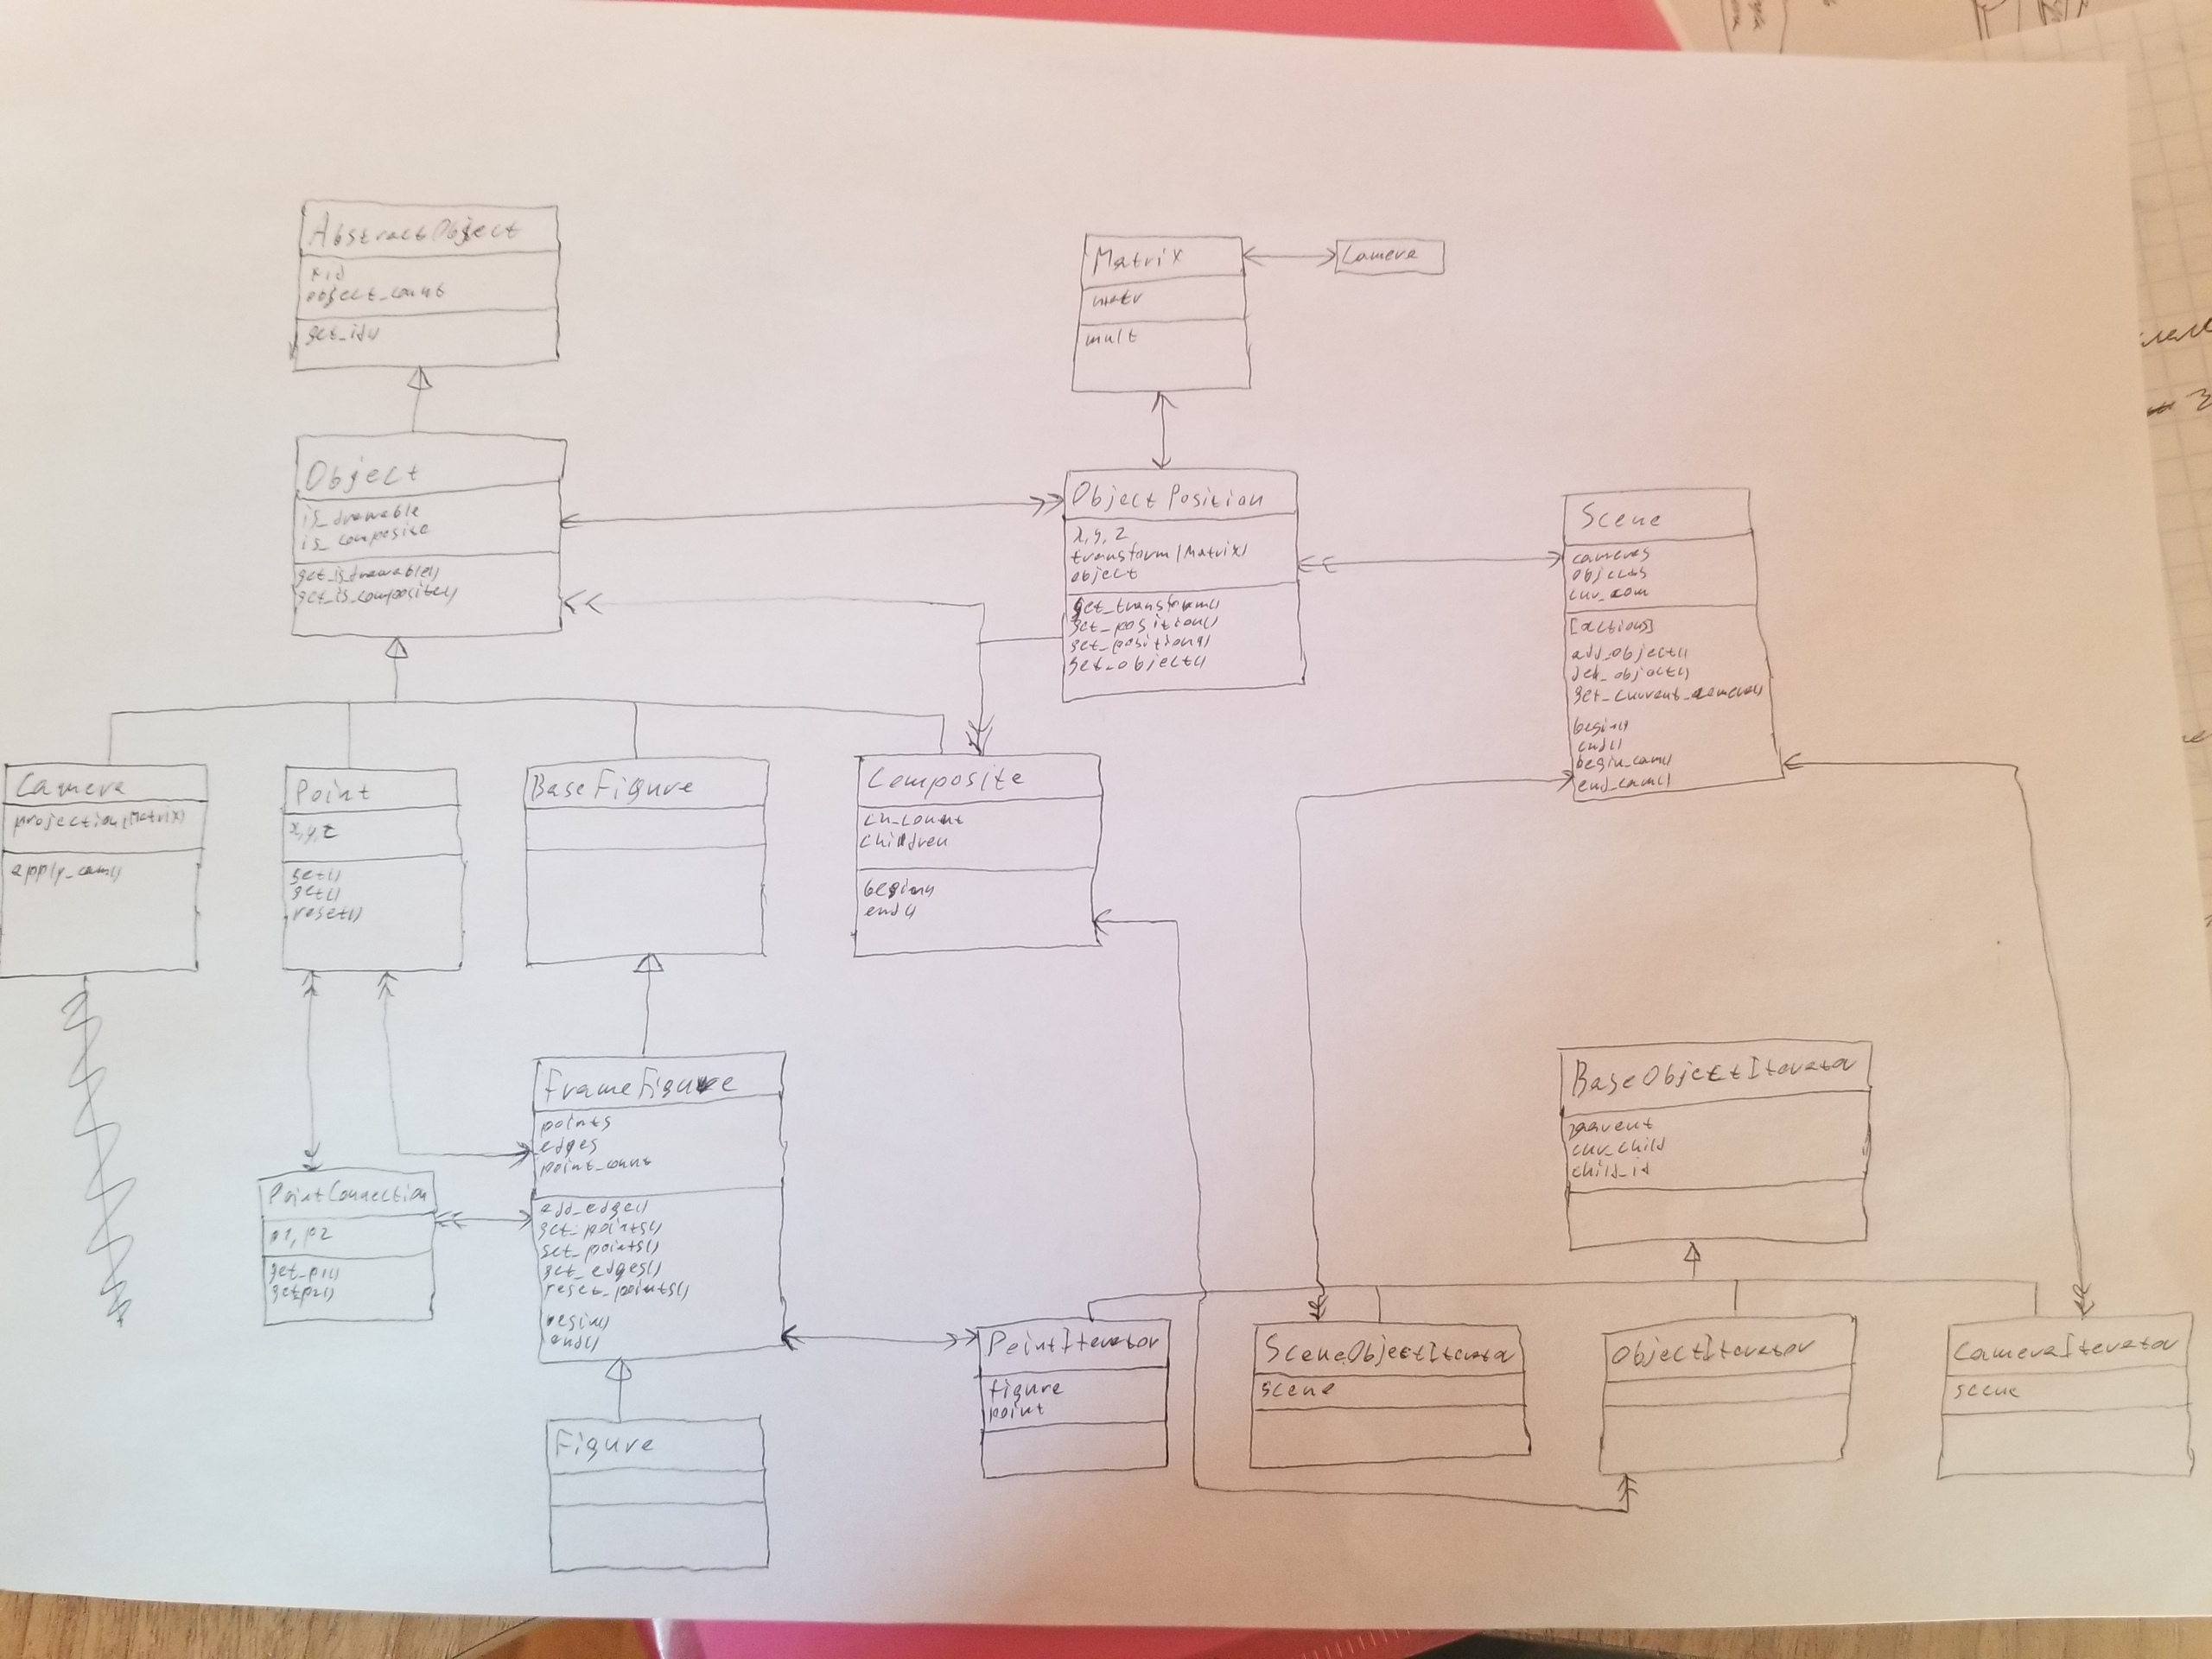 AbstractObject
object_count
get_id()
Matrix
matr
mult
Camera
Object
is_drawable
is_composite
get_is_drawable()
get_is_composite()
ObjectPosition
x, y, z
transform(Matrix)
object
get_transform()
get_position()
set_position()
get_object()
Scene
cameras
objects
cur_com
[actions]
add_object()
get_current_camera()
begin()
end()
begin_cam()
end_cam()
Camera
projection(Matrix)
apply_cam()
Point
x, y, z
set()
get()
reset()
BaseFigure
Composite
ch_count
children
begin()
end()
FrameFigure
points
edges
point_count
add_edge()
get_points()
set_points()
get_edges()
reset_points()
begin()
end()
PointConnection
p1, p2
get_p1()
get_p2()
BaseObjectIterator
parent
cur_child
child_id
PointIterator
figure
point
SceneObjectIterator
scene
ObjectIterator
CameraIterator
scene
Figure